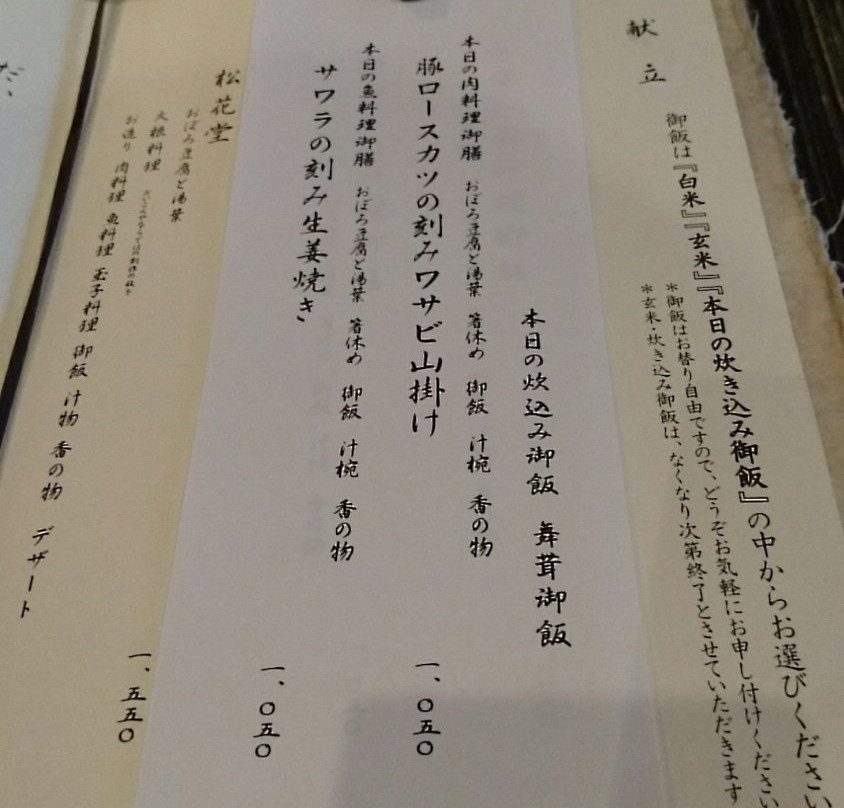 献立
御飯は『白米』『玄米』『本日の炊き込み御飯』の中からお選びください
＊御飯はお替り自由ですので、どうぞお気軽にお申し付けください
＊玄米・炊き込み御飯は、なくなり次第終了とさせていただきます
本日の炊込み御飯 舞茸御飯
本日の肉料理御膳 おぼろ豆腐と湯葉 箸休め 御飯 汁椀 香の物
豚ロースカツの刻みワサビ山掛け 一、〇五〇
本日の魚料理御膳 おぼろ豆腐と湯葉 箸休め 御飯 汁椀 香の物
サワラの刻み生姜焼き 一、〇五〇
松花堂
おぼろ豆腐と湯葉
大根料理
お造り 肉料理 魚料理 玉子料理 御飯 汁物 香の物 デザート 一、五五〇
だ、